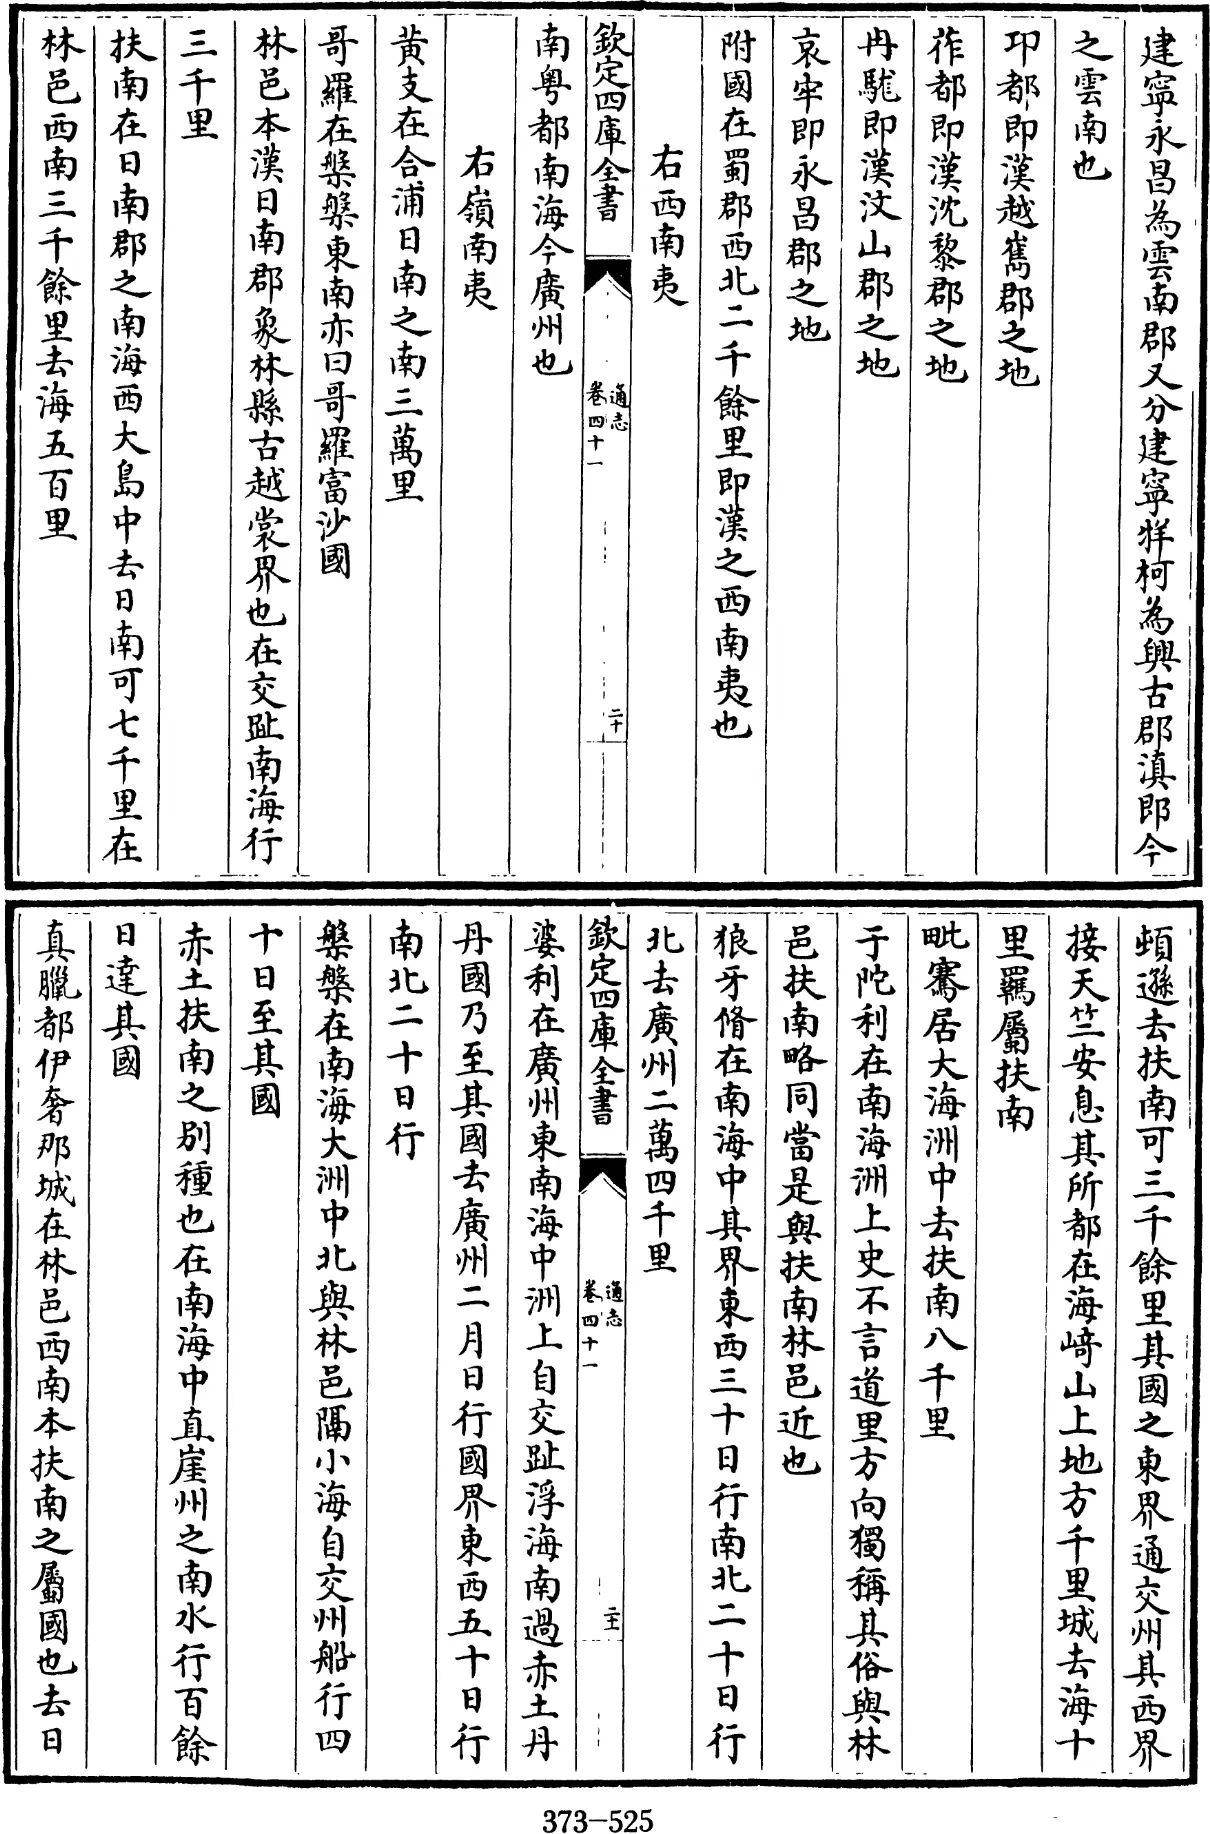 建寧永昌為雲南郡又分建寧牂柯為興古郡滇即今
之雲南也
卭都即漢越嶲郡之地
莋都即漢沈黎郡之地
冉駹即漢汶山郡之地
哀牢即永昌郡之地
附國在蜀郡西北二千餘里即漢之西南夷也
右西南夷
欽定四庫全書
通志
卷四十一
二十
南粤都南海今廣州也
右嶺南夷
黄支在合浦日南之南三萬里
哥羅在槃槃東南亦曰哥羅富沙國
林邑本漢日南郡象林縣古越裳界也在交趾南海行
三千里
扶南在日南郡之南海西大島中去日南可七千里在
林邑西南三千餘里去海五百里
頓遜去扶南可三千餘里其國之東界通交州其西界
接天竺安息其所都在海﨑山上地方千里城去海十
里羈屬扶南
毗騫居大海洲中去扶南八千里
于陀利在南海洲上史不言道里方向獨稱其俗與林
邑扶南略同當是與扶南林邑近也
狼牙脩在南海中其界東西三十日行南北二十日行
北去廣州二萬四千里
欽定四庫全書
通志
卷四十一
二十一
婆利在廣州東南海中洲上自交趾浮海南過赤土丹
丹國乃至其國去廣州二月日行國界東西五十日行
南北二十日行
槃槃在南海大洲中北與林邑隔小海自交州船行四
十日至其國
赤土扶南之别種也在南海中直崖州之南水行百餘
日達其國
真臘都伊奢那城在林邑西南本扶南之屬國也去日
373-525